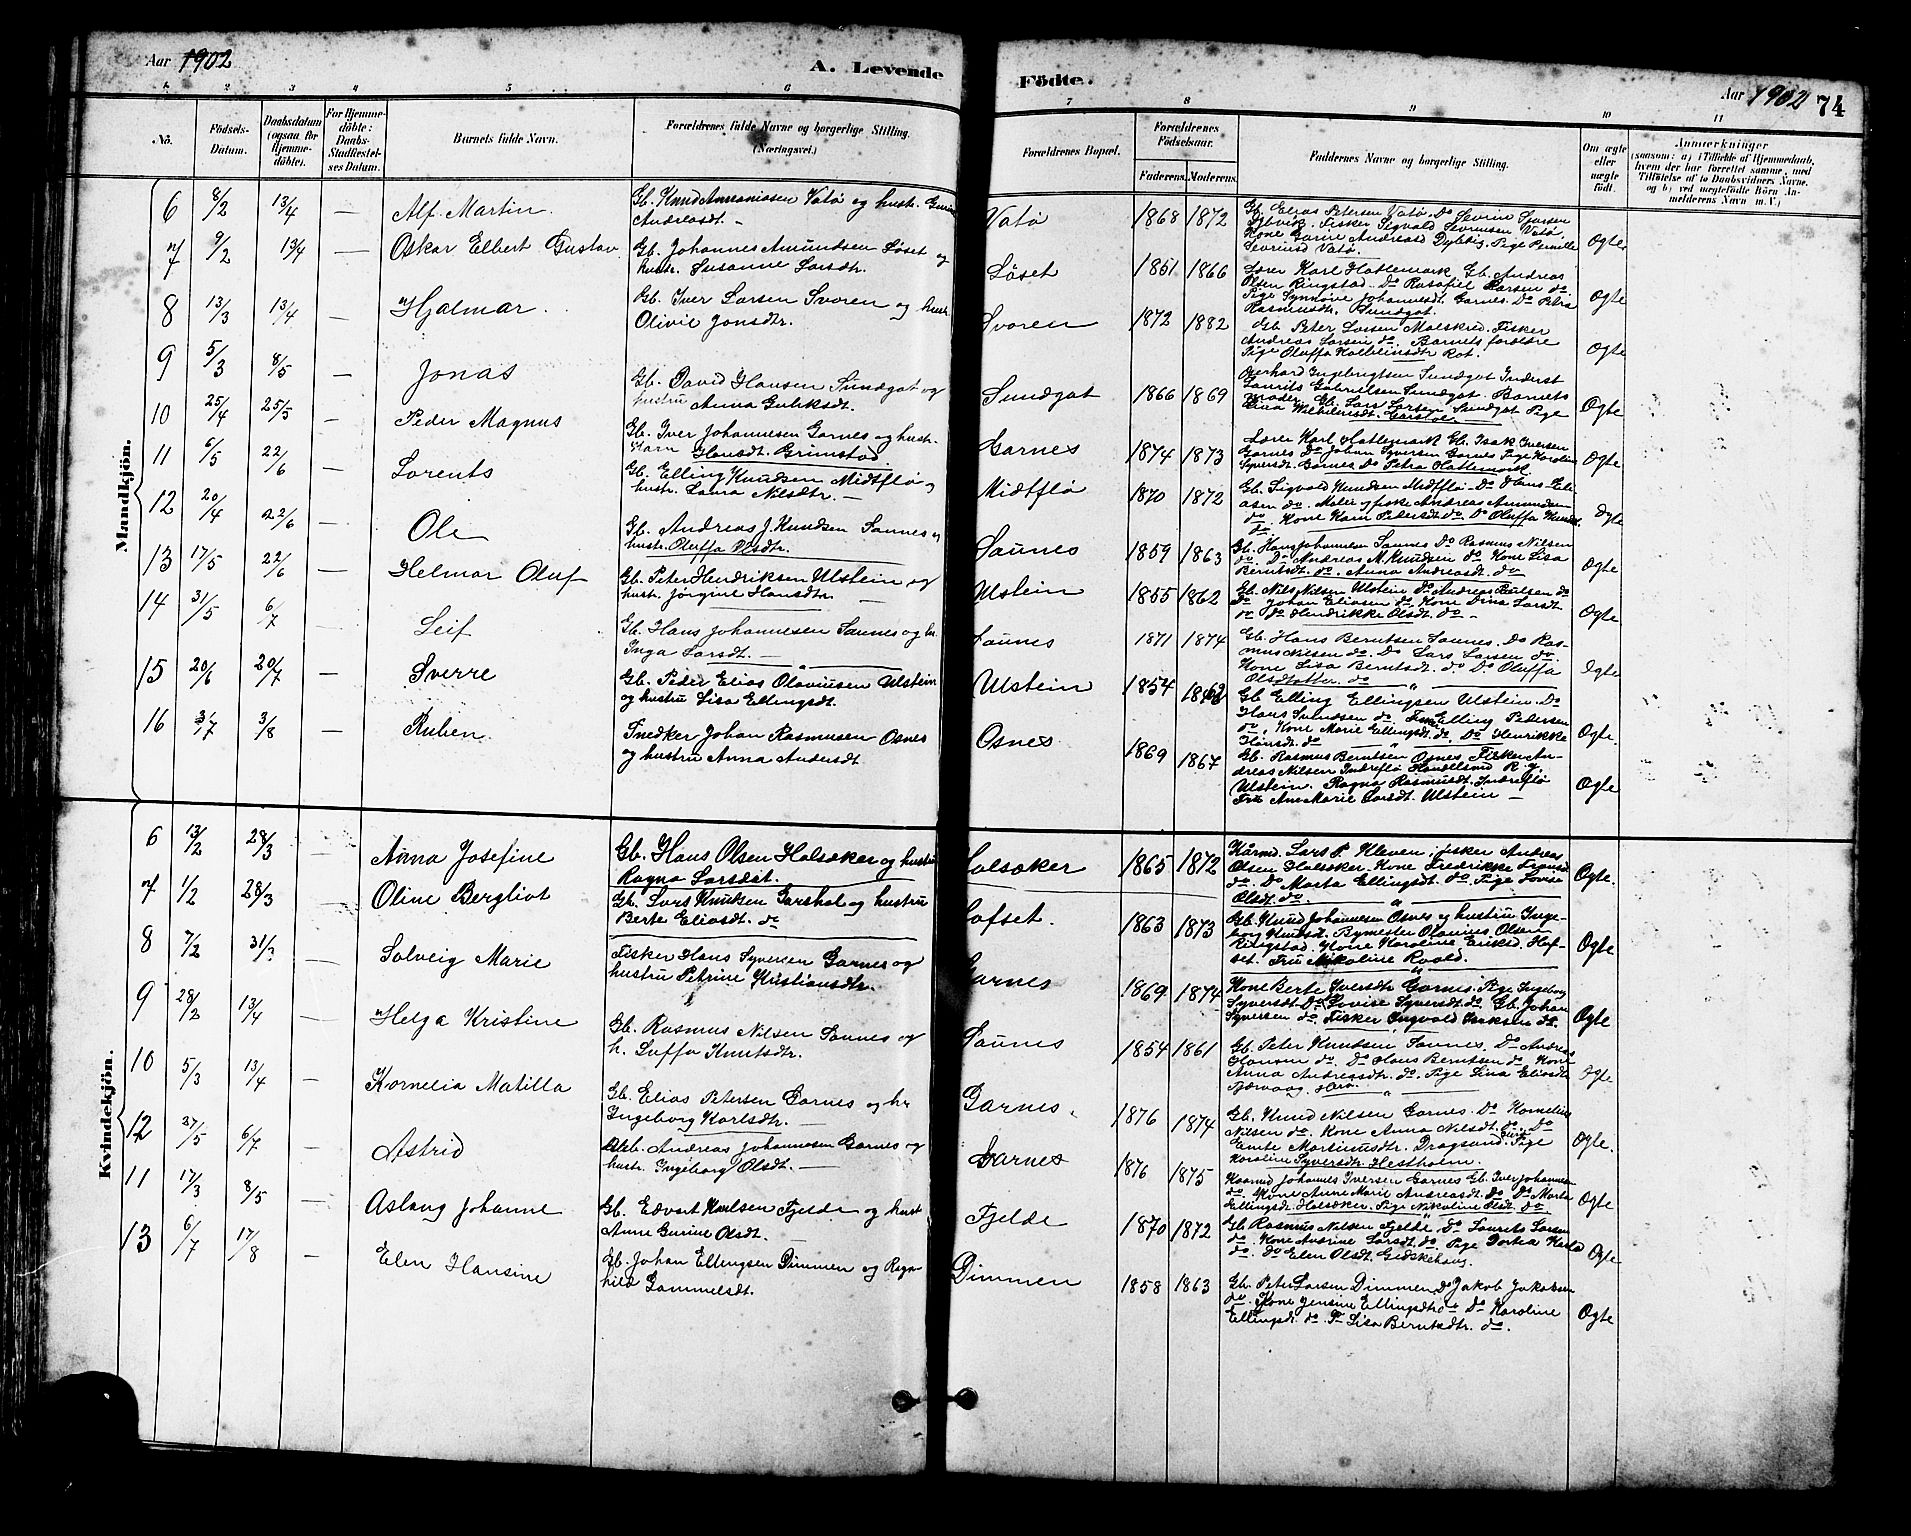 Aar 1902
A. Levende
Fødte.
Aar 1902
74
1 2 3 4 5 6 7 8 9 10 11
No.
Fødsels-
Datum.
Daabsdatum
(ogsaa for
Hjemme-
døbte).
For Hjemme-
døbte:
Daabs-
Stadfæstel-
ses Datum.
Barnets fulde Navn.
Forældrenes fulde Navne og borgerlige Stilling.
(Næringsvei.)
Forældrenes Bopæl.
Forældrenes
Fødselsaar.
Faderens. Moderens.
Faddernes Navne og borgerlige Stilling.
Om ægte
eller
uægte
født.
Anmærkninger
(saasom: a) i Tilfælde af Hjemmedaab,
hvem der har forrettet samme, med
Tilføielse af to Daabsvidners Navne,
og b) ved uægtefødte Børn An-
melderens Navn m.V.)
Mandkjön.
6 8/2 13/4 — Alf Martin. Gb. Knud Ananiasen Vatø og hustr. Gurine
Andreasdt. — Vatø 1868 1872 Gb. Elias Petersen Vatø. Do Severin
Fisker Sigvald Sevrinsen Vatø.
Sevrinsd Vatø. Ægte
7 9/2 13/4 Oskar Elbert Gustav Gb. Johannes Amundsen Løset og
hustr. Susanne Larsdtr. Løset 1851 1866 Lærer Karl Hatlemark Gb. Andreas
Olsen Ringstad. Do Rasafiel Larsen do.
Pige Synnøve Johannesdt. Garnes. Do Petra
Rasmusdtr. Sundgot. Ægte
8 13/3 13/4 — Hjalmar. Gb. Iver Larsen Svoren og hust.
Olivie Jonsdtr. Svoren 1872 1882 Gb. Peter Larsen Molskred. Fisker
Andreas Larsen do. Barnets forældre
Pige Oluffa Kolbeinsdtr Rot. Ægte
9 5/3 8/5 — Jonas Gb. David Hansen Sundgot og
hustru Anna Guliksdt. Sundgot 1866 1869 Gerhard Ingebrigtsen Sundgot Inderst
Laurits Gabrielsen Sundgot. Barnets
moder. Gb. Lars Larsen Sundgot Pige
Ægte
10 25/4 25/5 — Peder Magnus Gb. Iver Johannesen Garnes og hustr.
Karn Hansdt. Grimstad Garnes 1874 1873 Lærer Karl Hatlemark Gb. Isak Iversen
Garnes Do Johan Syversen Garnes Pige Karoline
Syversdt. Garnes Do Petra Hatlemark Ægte
11 6/5 22/6 — Lorents Gb. Elling Knudsen Midtflø og
hustr. Laura Nilsdtr. — Midtflø 1870 1872 Gb. Sigvald Knudsen Midtflø. Do Hans Eli-
asen do. Andreas Amundsen
do. Kone Karn Pedersdt. do. Do Oluffa Knudsd.
do. Ægte
12 20/4 22/6 — Ole Gb. Andreas J. Knudsen Saunes og
hustr. Oluffa Olsdtr. Saunes 1859 1863 Gb. Hans Johannesen Saunes Do Rasmus Nilsen
do. Do Andreas M. Knudsen do Kone Lisa
Berntsdt. do. Anna Andreasdt. do Ægte
13 17/5 22/6 — Helmar Oluf Gb. Peter Hendriksen Ulstein og
hustr. Jørgine Hansdtr. — Ulstein 1855 1862 Gb. Nils Nilsen Ulstein Do Andreas Paulsen do
Do Johan Eliasen do. Kone Dina Larsdt.
do Do Hendrikke Olsdt. do — Ægte
14 31/5 6/7 Leif Gb. Hans Johannesen Saunes og hu.
Inga Larsdt. — Saunes 1871 1874 Gb. Hans Berntsen Saunes. Do Ras-
mus Nilsen do. Do Lars Larsen do.
Kone Lisa Berntsdt. do Do Oluffa
Olsdatter. do Ægte
15 20/6 20/7 — Sverre Gb. Peder Elias Olavusen Ulstein
og hustru Lisa Ellingsdt. Ulstein 1854 1862 Gb. Elling Ellingsen Ulstein. Do
Hans do. Elling Pedersen
do. Kone Marie Ellingsdt. do. Do Henrikke
Hansdt. do Ægte.
16 3/7 3/8 — Ruben. Snedker Johan Rasmusen Osnes
og hustru Anna Andersdt. Osnes 1869 1867 Gb. Rasmus Berntsen Osnes. Fisker An-
dreas Nilsen Indreflø
Ulstein. Ragna Rasmusdt. Indreflø
Fru Ane Marie Larsdt. Ulstein — Ægte
Kvindekjön.
6 13/2 28/3 — Anna Josefine Gb. Hans Olsen Halsøker og hustru
Ragna Larsdat. Halsøker 1865 1872 Kårmd. Lars P. Kleven. fisker Andreas
Olsen Halsøker Kone Fredrikke
do. Do Marta Ellingsdt. do. Pige Lovise
Olsdt. do. Ægte.
7 1/2 28/3 — Oline Bergliot Gb. Lars Knutsen Garshol og hustru
Berte Eliasdt. do Hofset. 1863 1873 Gb. Knud Johannesen Osnes og hustru Inge-
borg Knudsdt. Bymester Olavius Olsen
Ringstad. Kone Karoline Eriksd. Hof-
set. Fru Nikoline Roald. Ægte
8 7/2 31/3 — Solveig Marie Fisker Hans Syversen Garnes og
hustru Petrine Kristiansdtr. Garnes 1869 1874 Kone Berte Iversdtr Garnes. Pige Ingeborg
Syversdt. Do Lovise Syversdt. do. Gb. Johan
Syversen do. Fisker Ingvald do. Ægte
9 28/2 13/4 — Helga Kristine Gb. Rasmus Nilsen Saunes og
h. Luffa Knutsdtr. Saunes 1854 1861 Gb. Peter Knudsen Saunes. Do Andreas
Hansen do. Do Hans Berntsen do Kone
Anna Andreasdtr. do. Pige Lina Eliasdtr
Ægte
10 5/3 13/4 — Kornelia Matilla Gb. Elias Petersen Garnes og hu
Ingeborg Karlsdtr. — Garnes. 1876 1874 Gb. Knud Nilsen Garnes. Do Kornelius
Nilsen do. Kone Anna Nilsdt. do. Do
Emte Martinusdtr. Dragsund. Pige
Karoline Syversdtr. Hestholm. Ægte.
12 27/5 6/7 — Astrid Andreas Johannesen Garnes og
hustr. Ingeborg Olsdt. — Garnes 1876 1875 Kaarmd Johannes Iversen Garnes Gb. Iver Johannesen
do. Kone Anne Marie Andreasdt. do Do Marta
Ellingsdt. Halsøker. Pige Nikoline Olsdt. Do Ægte
11 17/3 8/5 — Aslaug Johanne Gb. Edvart Karlsen Fjelde og hust
Anne Gurine Olsdt. — Fjelde 1870 1872 Gb. Rasmus Nilsen Fjelde. Do Laurits Larsen
do. Kone Andrine Larsdt. do. Pige Dortea Karlsd
do. do Elen Olsdt. Gidskehaug. Ægte
13 6/7 17/8 — Elen Hansine Gb. Johan Ellingsen Dimmen og Ragn-
hild Gammelsdt. Dimmen 1858 1863 Gb. Peter Larsen Dimmen Do Jakob Jakobsen
do. Kone Jensine Ellingsdtr do Do Karoline
Ellingsd. do Do Lisa Berntsdtr. do. Ægte